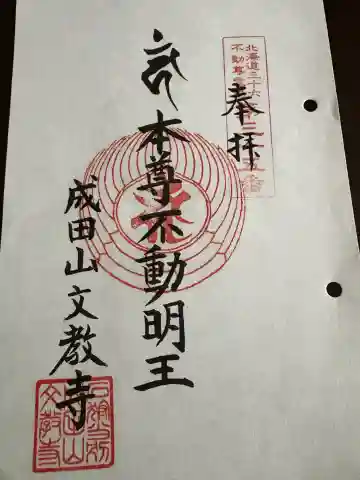 北海道三十六
不動尊
奉拝
本尊不動明王
成田山文教寺